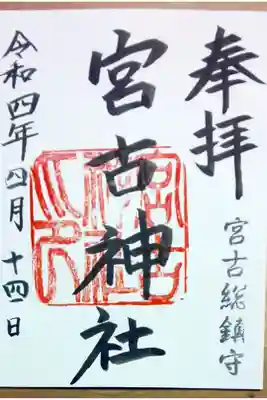 奉拝
宮古総鎮守
宮古神社
令和四年四月十四日